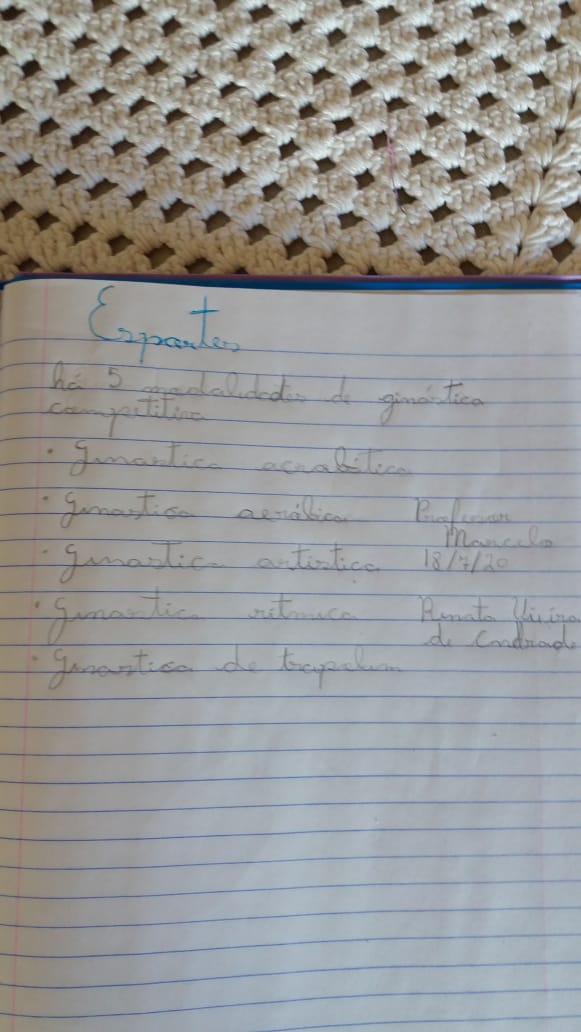 Esportes
há 5 modalidades de ginástica
competitiva
• ginastica acrobática
• ginastica aeróbica
Professor
Marcelo
• ginastica artistica
18/7/20
• ginastica ritmica
Renata Vieira
de Andrade
• ginastica de trapolim